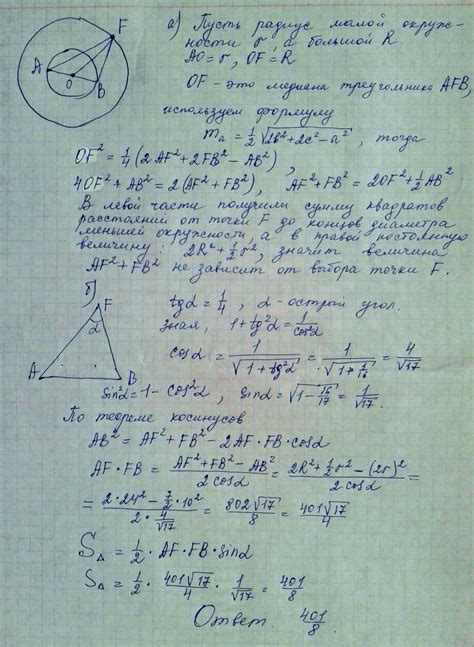 а) Пусть радиус малой окруж-
ности r, а большой R
AO = r, OF = R
OF - это медиана треугольника AFB,
используем формулу
mₐ = 1/2 √(2b² + 2c² - a²), тогда
OF² = 1/4 (2AF² + 2FB² - AB²),
4OF² + AB² = 2(AF² + FB²), AF² + FB² = 2OF² + 1/2 AB²
В левой части получили сумму квадратов
расстояний от точки F до концов диаметра
меньшей окружности, а в правой постоянную
величину: 2R² + 1/2 r², значит величина
AF² + FB² не зависит от выбора точки F.
A
O
B
F
б)
tgα = 1/4, α - острый угол.
Зная, 1 + tg²α = 1/cos²α
cosα = 1/√(1 + tg²α) = 1/√(1 + 1/16) = 4/√17
A
B
F
α
sin²α = 1 - cos²α, sinα = √(1 - 16/17) = 1/√17.
По теореме косинусов
AB² = AF² + FB² - 2AF · FB · cosα
AF · FB = (AF² + FB² - AB²)/(2cosα) = (2R² + 1/2 r² - (2r)²)/(2cosα) =
= (2·24² - 7/2 · 10²)/(2 · 4/√17) = 802√17/8 = 401√17/4
S△ = 1/2 · AF · FB · sinα
S△ = 1/2 · 401√17/4 · 1/√17 = 401/8
Ответ. 401/8.